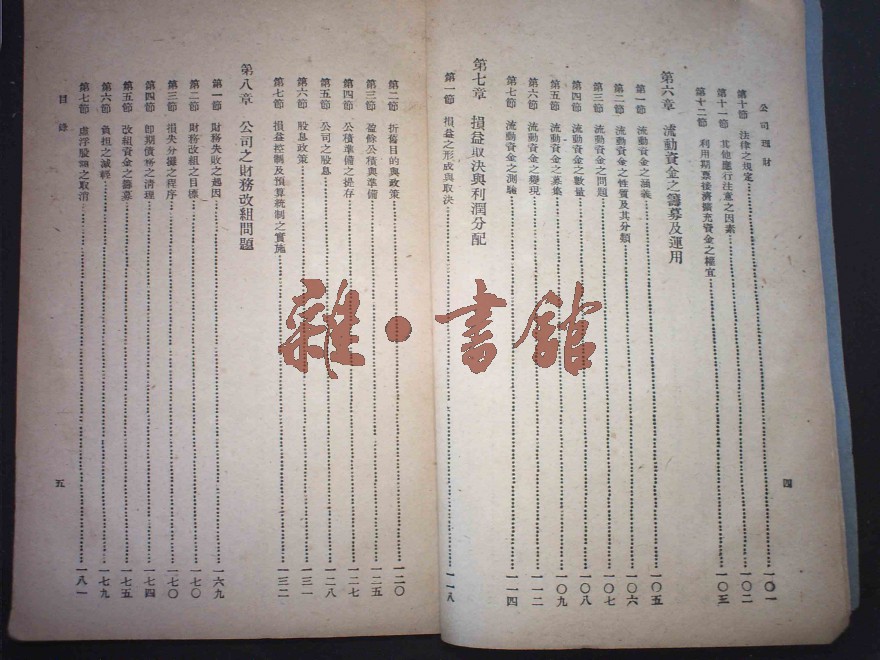 公司理財
四
第十節 法律之規定 一〇一
第十一節 其他應行注意之因素 一〇二
第十二節 利用期票接濟擴充資金之權宜 一〇三
第六章 流動資金之籌募及運用
第一節 流動資金之涵義 一〇五
第二節 流動資金之性質及其分類 一〇六
第三節 流動資金之問題 一〇八
第四節 流動資金之數量 一〇八
第五節 流動資金之募集 一〇九
第六節 流動資金之變現 一一二
第七節 流動資金之測驗 一一四
第七章 損益取決與利潤分配
第一節 損益之形成與取決 一一八
第二節 折舊目的與政策 一二〇
第三節 盈餘公積與準備 一二五
第四節 公積準備之提存 一二七
第五節 公司之股息 一二八
第六節 股息政策 一三一
第七節 損益控制及預算統制之實施 一三二
第八章 公司之財務改組問題
第一節 財務失敗之遇因 一六九
第二節 財務改組之目標 一七〇
第三節 損失分攤之程序 一七〇
第四節 即期債務之清理 一七四
第五節 改組資金之籌募 一七五
第六節 負担之減輕 一七九
第七節 虛浮股額之取消 一八一
目錄
五
雜·書館